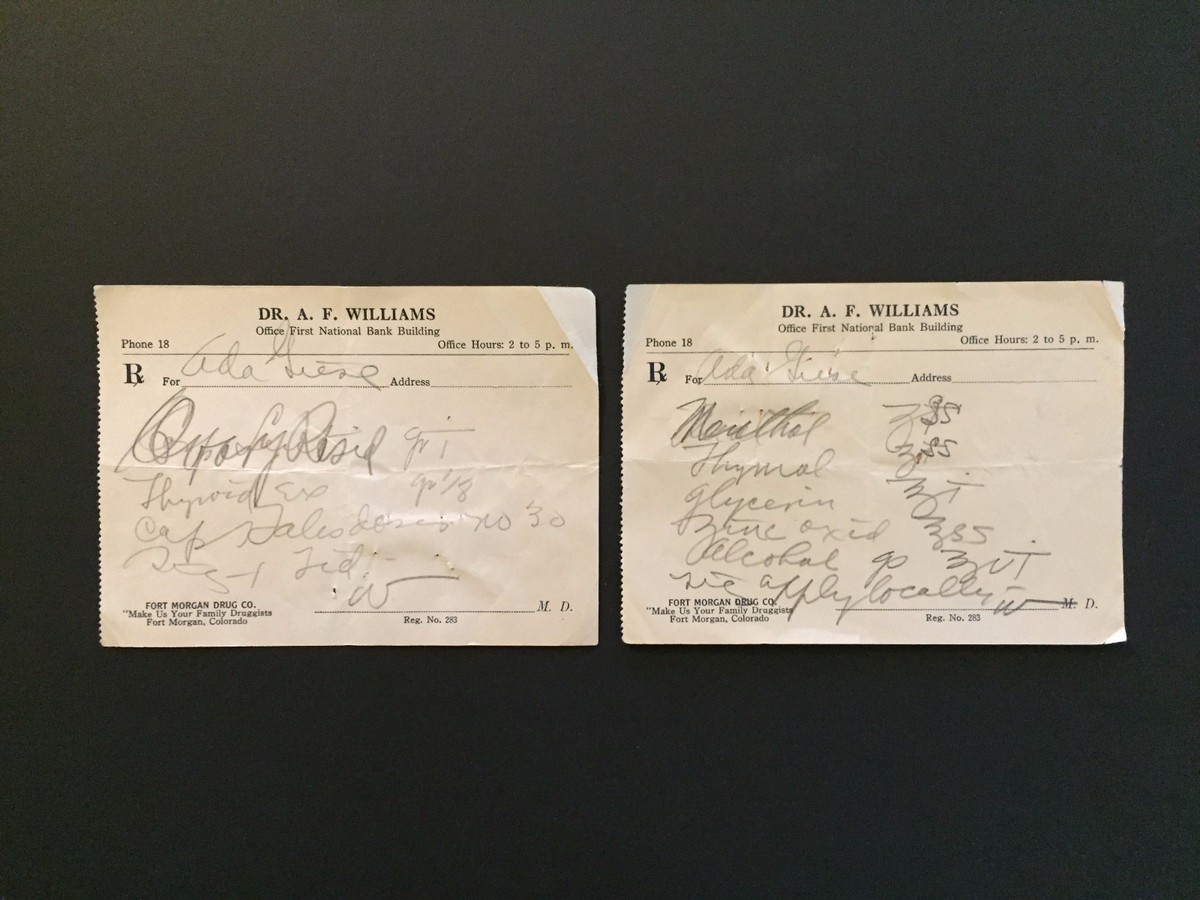 DR. A. F. WILLIAMS
Office First National Bank Building
Phone 18 Office Hours: 2 to 5 p. m.
℞ For Ada Giese Address
gr i
Thyroid Ex gr 1/8
Cap no 30
Sig 1 Tid
W
M. D.
FORT MORGAN DRUG CO.
"Make Us Your Family Druggists
Fort Morgan, Colorado
Reg. No. 283
DR. A. F. WILLIAMS
Office First National Bank Building
Phone 18 Office Hours: 2 to 5 p. m.
℞ For Ada Giese Address
Menthol ʒss
Thymol ʒss
Glycerin ʒi
Zinc oxid ʒss
Alcohol
Sig apply locally W
M. D.
FORT MORGAN DRUG CO.
"Make Us Your Family Druggists
Fort Morgan, Colorado
Reg. No. 283